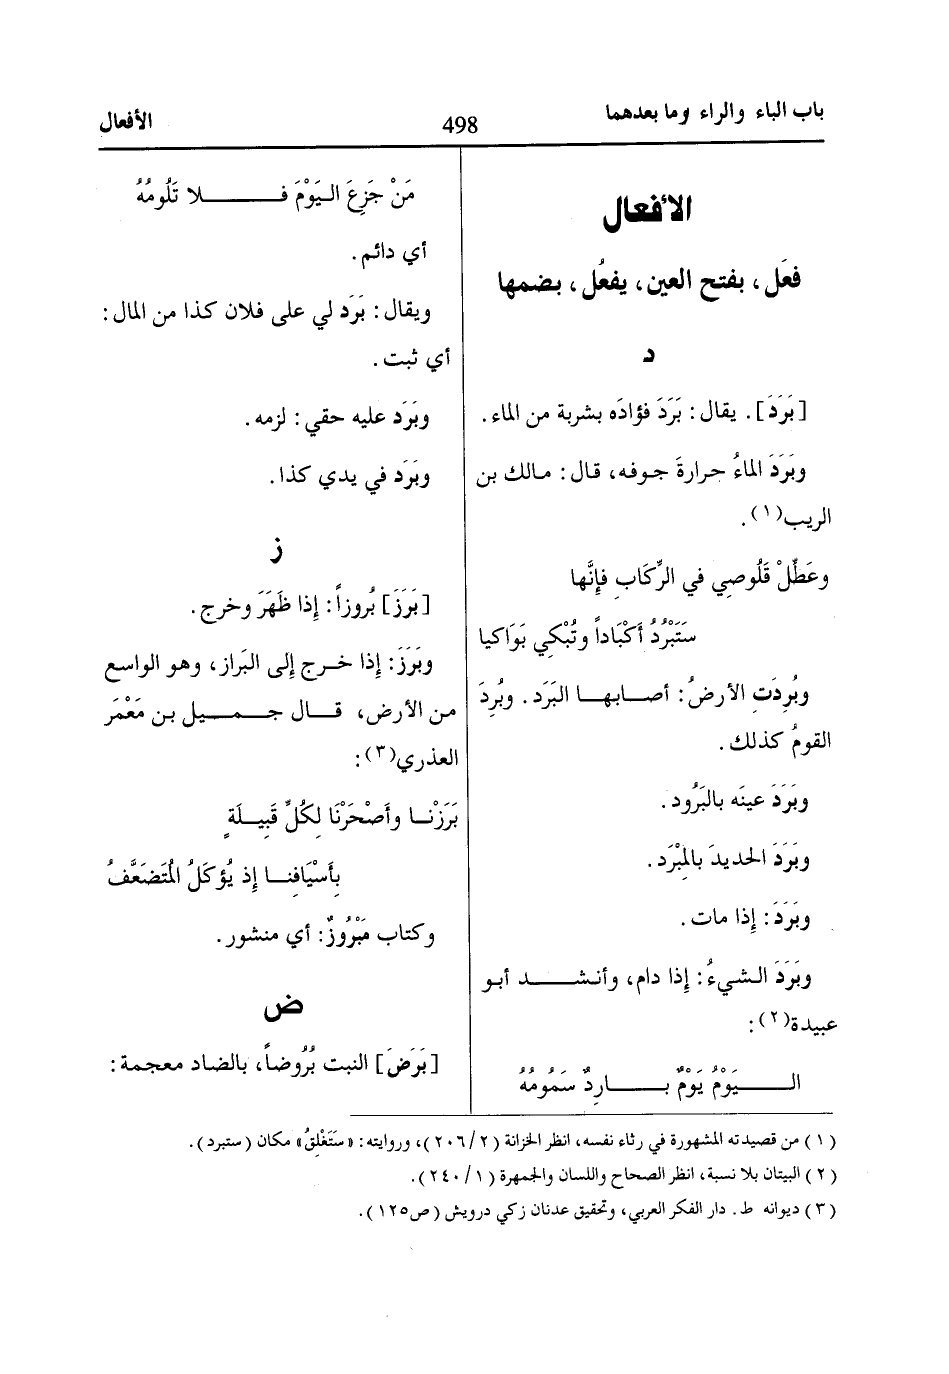 باب الباء والراء وما بعدهما
498
الأفعال
الأفعال
فعَل، بفتح العين، يفعُل، بضمها
د
[بَرَدَ]. يقال: بَرَدَ فؤادَه بشربة من الماء.
وبَرَدَ الماءُ حرارةَ جوفه، قال: مالك بن
الريب(١).
وعَطِّلْ قَلُوصِي في الرِّكَابِ فإنَّها
سَتَبْرُدُ أَكْبَاداً وتُبْكِي بَوَاكيا
وبُرِدَتِ الأرضُ: أصابها البَرَد. وبُرِدَ
القومُ كذلك.
وبَرَدَ عينَه بالبَرُود.
وبَرَدَ الحديدَ بالمِبْرَد.
وبَرَدَ: إذا مات.
وبَرَدَ الشيءُ: إذا دام، وأنشد أبو
عبيدة(٢):
اليَوْمُ يَوْمٌ بارِدٌ سَمُومُهُ
مَنْ جَزِعَ اليَوْمَ فلا تَلُومُهُ
أي دائم.
ويقال: بَرَد لي على فلان كذا من المال:
أي ثبت.
وبَرَد عليه حقي: لزمه.
وبَرَد في يدي كذا.
ز
[بَرَزَ] بُروزاً: إذا ظَهَرَ وخرج.
وبَرَزَ: إذا خرج إلى البَراز، وهو الواسع
من الأرض، قال جميل بن مَعْمَر
العذري(٣):
بَرَزْنا وأَصْحَرْنَا لِكُلِّ قَبِيلَةٍ
بِأَسْيَافِنا إذ يُؤكَلُ المُتَضَعَّفُ
وكتاب مَبْرُوزٌ: أي منشور.
ض
[بَرَضَ] النبت بُرُوضاً، بالضاد معجمة:
(١) من قصيدته المشهورة في رثاء نفسه، انظر الخزانة (٢/ ٢٠٦)، وروايته: «سَتَغْلِقُ» مكان (ستبرد).
(٢) البيتان بلا نسبة، انظر الصحاح واللسان والجمهرة (١/ ٢٤٠).
(٣) ديوانه ط. دار الفكر العربي، وتحقيق عدنان زكي درويش (ص١٢٥).